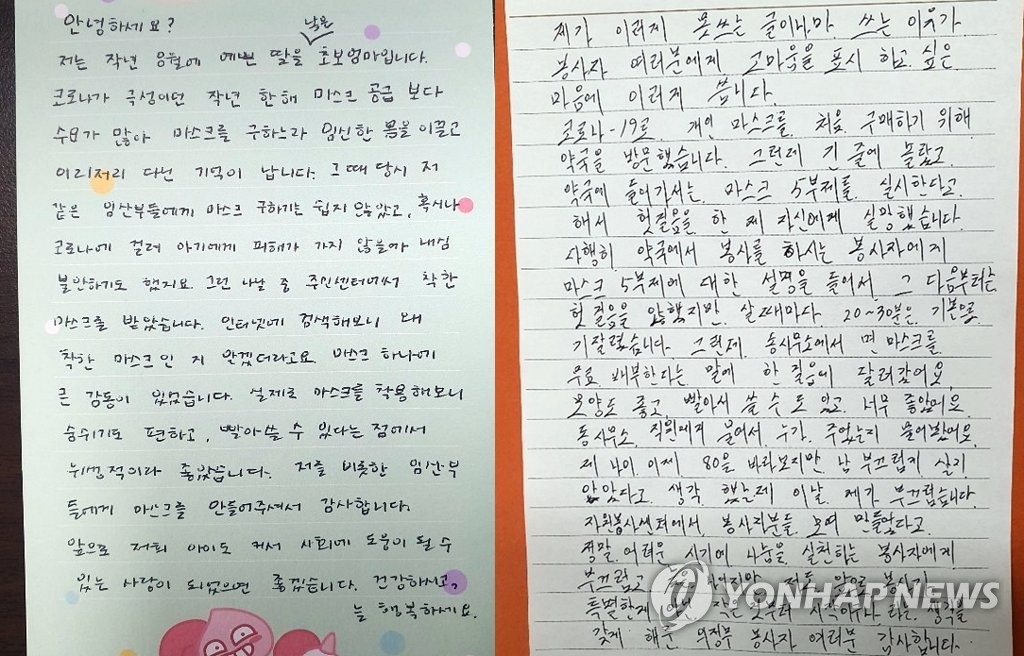 안녕하세요?
저는 작년 8월에 예쁜 딸을 낳은 초보엄마입니다.
코로나가 극성이던 작년 한해 마스크 공급 보다
수요가 많아 마스크를 구하느라 임신한 몸을 이끌고
이리저리 다닌 기억이 납니다. 그때 당시 저
같은 임산부들에게 마스크 구하기는 쉽지 않았고, 혹시나
코로나에 걸려 아기에게 피해가 가지 않을까 내심
불안하기도 했지요. 그런 나날 중 주민센터에서 착한
마스크를 받았습니다. 인터넷에 검색해보니 왜
착한 마스크인 지 알겠더라고요. 마스크 하나에
큰 감동이 있었습니다. 실제로 마스크를 착용해보니
숨쉬기도 편하고, 빨아쓸 수 있다는 점에서
위생적이라 좋았습니다. 저를 비롯한 임산부
들에게 마스크를 만들어주셔서 감사합니다.
앞으로 저희 아이도 커서 사회에 도움이 될 수
있는 사람이 되었으면 좋겠습니다. 건강하시고,
늘 행복하세요.
제가 이러게 못쓰는 글이나마 쓰는 이유가
봉사자 여러분에게 고마움을 표시 하고 싶은
마음에 이러게 씁니다.
코로나-19로 개인 마스크를 처음 구매하기 위해
약국을 방문했습니다. 그런데 긴 줄에 놀랐고
약국에 들어가서는 마스크 5부제를 실시한다고
해서 헛걸음을 한 제 자신에게 실망했습니다.
다행히 약국에서 봉사를 하시는 봉사자에게
마스크 5부제에 대한 설명을 들어서 그 다음부터는
헛걸음을 안했지만 살때마다 20~30분은 기본으로
기달렸습니다. 그런데 동사무소에서 면 마스크를
무료 배부한다는 말에 한 걸음에 달려갔어요.
모양도 좋고, 빨아서 쓸 수 도 있고 너무 좋았어요.
동사무소 직원에게 물어서 누가 주었는지 물어봤어요.
제 나이 이제 80을 바라보지만 남 부끄럽게 살지
않았다고 생각 했는데 이날 제가 부끄럽습니다
자원봉사센터에서 봉사자분들 모여 만들었다고
정말 어려운 시기에 나눔을 실천하는 봉사자에게
부끄럽고 저도 앞으로 봉사가
특별한게 작은 것부터 시작이구나 라는 생각을
갖게 해준 의정부 봉사자 여러분 감사합니다.
YONHAP NEWS